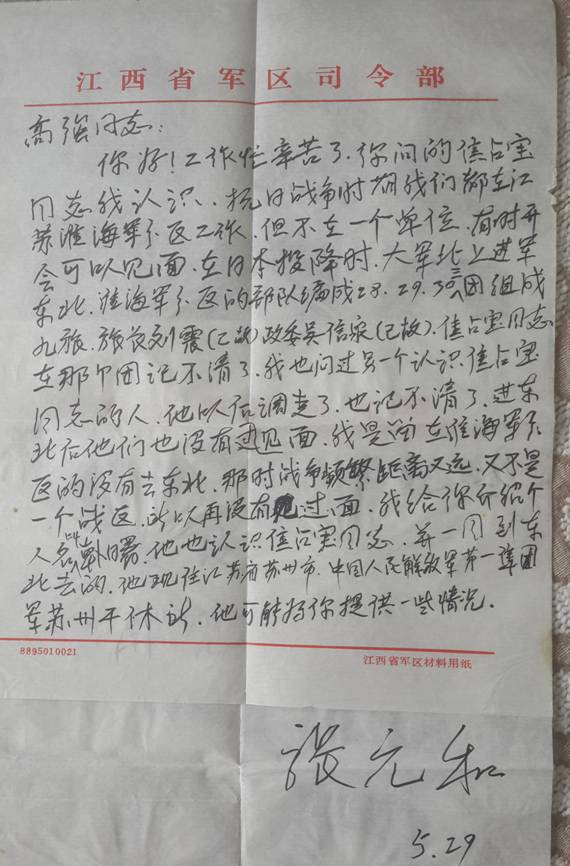 江西省军区司令部
高强同志：
你好！工作忙辛苦了．你问的佳占宝
同志我认识．．抗日战争时期我们都在江
苏淮海军分区工作．但不在一个单位．有时开
会可以见面．在日本投降时．大军北上进军
东北．淮海军分区的部队编成28．29．30三个团组成
九旅．旅长刘震(已故)政委吴信泉(已故)．佳占宝同志
在那个团记不清了．我也问过另一个认识佳占宝
同志的人．他以后调走了．也记不清了．进东
北后他们也没有过见面．我是留在淮海军分
区的没有去东北．那时战争频繁距离又远．又不是
一个战区．所以再没有见过面．我给你介绍个
人名叫 曙．他也认识佳占宝同志．并一同到东
北去的．他现住江苏省苏州市．中国人民解放军第一集团
军苏州干休所．他可能将你提供一些情况．
8895010021
江西省军区材料用纸
张元和
5.29